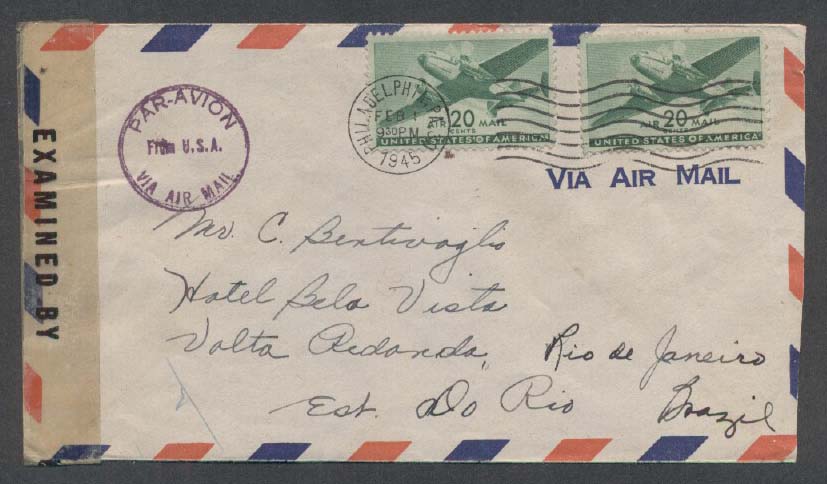 EXAMINED BY
PAR-AVION
From U.S.A.
VIA AIR MAIL
PHILADELPHIA, PA.
FEB 1
930PM
1945
20
AIR MAIL
CENTS
UNITED STATES OF AMERICA
20
AIR MAIL
CENTS
UNITED STATES OF AMERICA
VIA AIR MAIL
Mr. C. Bentivoglio
Hotel Bela Vista
Volta Redonda, Rio de Janeiro
Est. Do Rio Brazil